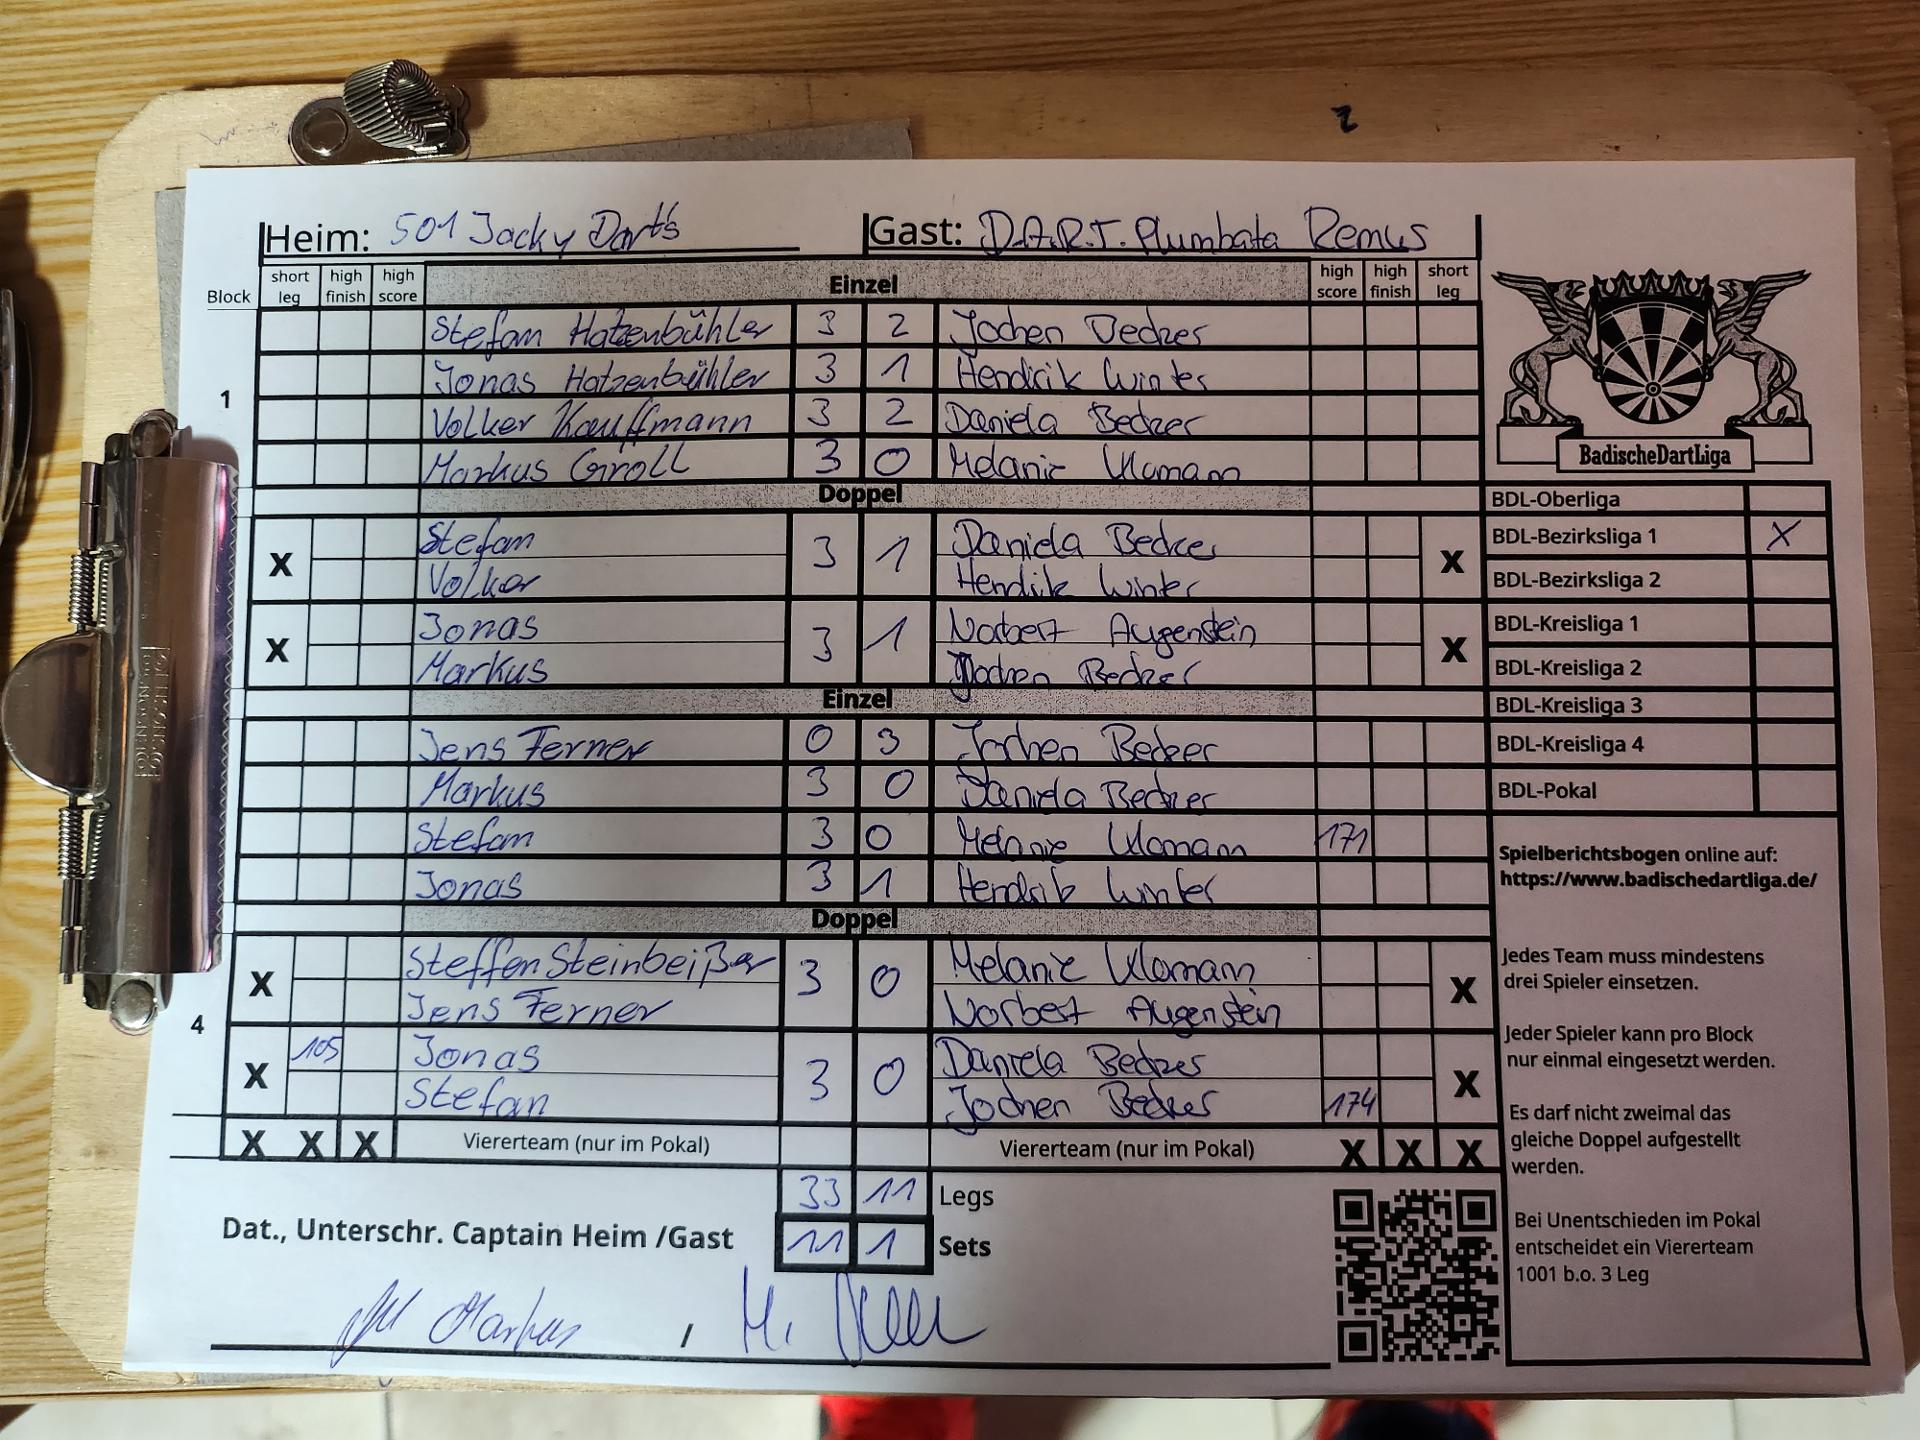 Heim: 501 Jacky Darts Gast: D.A.R.T. Plumbata Remus
Block short leg high finish high score Einzel high score high finish short leg
Stefan Hatzenbühler 3 2 Jochen Becker
Jonas Hatzenbühler 3 1 Hendrik Winter
1
Volker Kauffmann 3 2 Daniela Becker
Markus Groll 3 0 Melanie Ulamann
Doppel
X Stefan 3 1 Daniela Becker X
Volker Hendrik Winter
X Jonas 3 1 Norbert Augenstein X
Markus Jochen Becker
Einzel
Jens Ferner 0 3 Jochen Becker
Markus 3 0 Daniela Becker
Stefan 3 0 Melanie Ulamann 171
Jonas 3 1 Hendrik Winter
Doppel
X Steffen Steinbeißer 3 0 Melanie Ulamann X
Jens Ferner Norbert Augenstein
4
X 105 Jonas 3 0 Daniela Becker X
Stefan Jochen Becker 174
X X X Viererteam (nur im Pokal) Viererteam (nur im Pokal) X X X
33 11 Legs
Dat., Unterschr. Captain Heim /Gast 11 1 Sets
Markus /
BadischeDartLiga
BDL-Oberliga
BDL-Bezirksliga 1 X
BDL-Bezirksliga 2
BDL-Kreisliga 1
BDL-Kreisliga 2
BDL-Kreisliga 3
BDL-Kreisliga 4
BDL-Pokal
Spielberichtsbogen online auf:
https://www.badischedartliga.de/
Jedes Team muss mindestens
drei Spieler einsetzen.
Jeder Spieler kann pro Block
nur einmal eingesetzt werden.
Es darf nicht zweimal das
gleiche Doppel aufgestellt
werden.
Bei Unentschieden im Pokal
entscheidet ein Viererteam
1001 b.o. 3 Leg